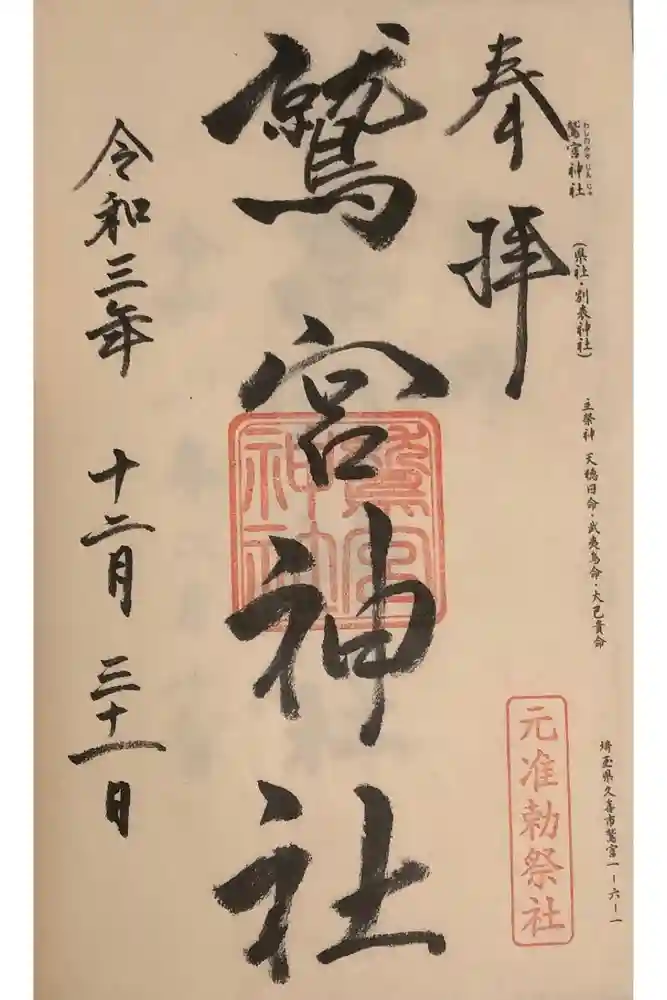 鷲宮神社
わしのみやじんじゃ
(県社・別表神社)
主祭神 天穂日命・武夷鳥命・大己貴命
埼玉県久喜市鷲宮一ー六ー一
奉拝
元准勅祭社
鷲宮神社
鷲宮神社
令和三年 十二月 三十一日